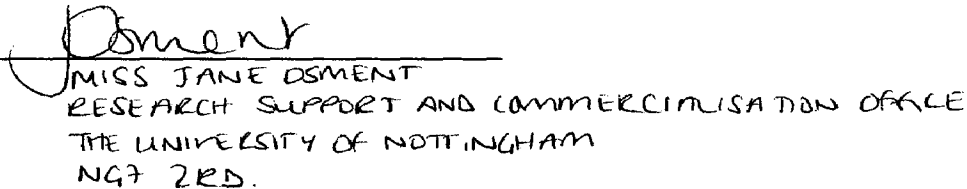 JOsment
MISS JANE OSMENT
RESEARCH SUPPORT AND COMMERCIALISATION OFFICE
THE UNIVERSITY OF NOTTINGHAM
NG7 2RD.